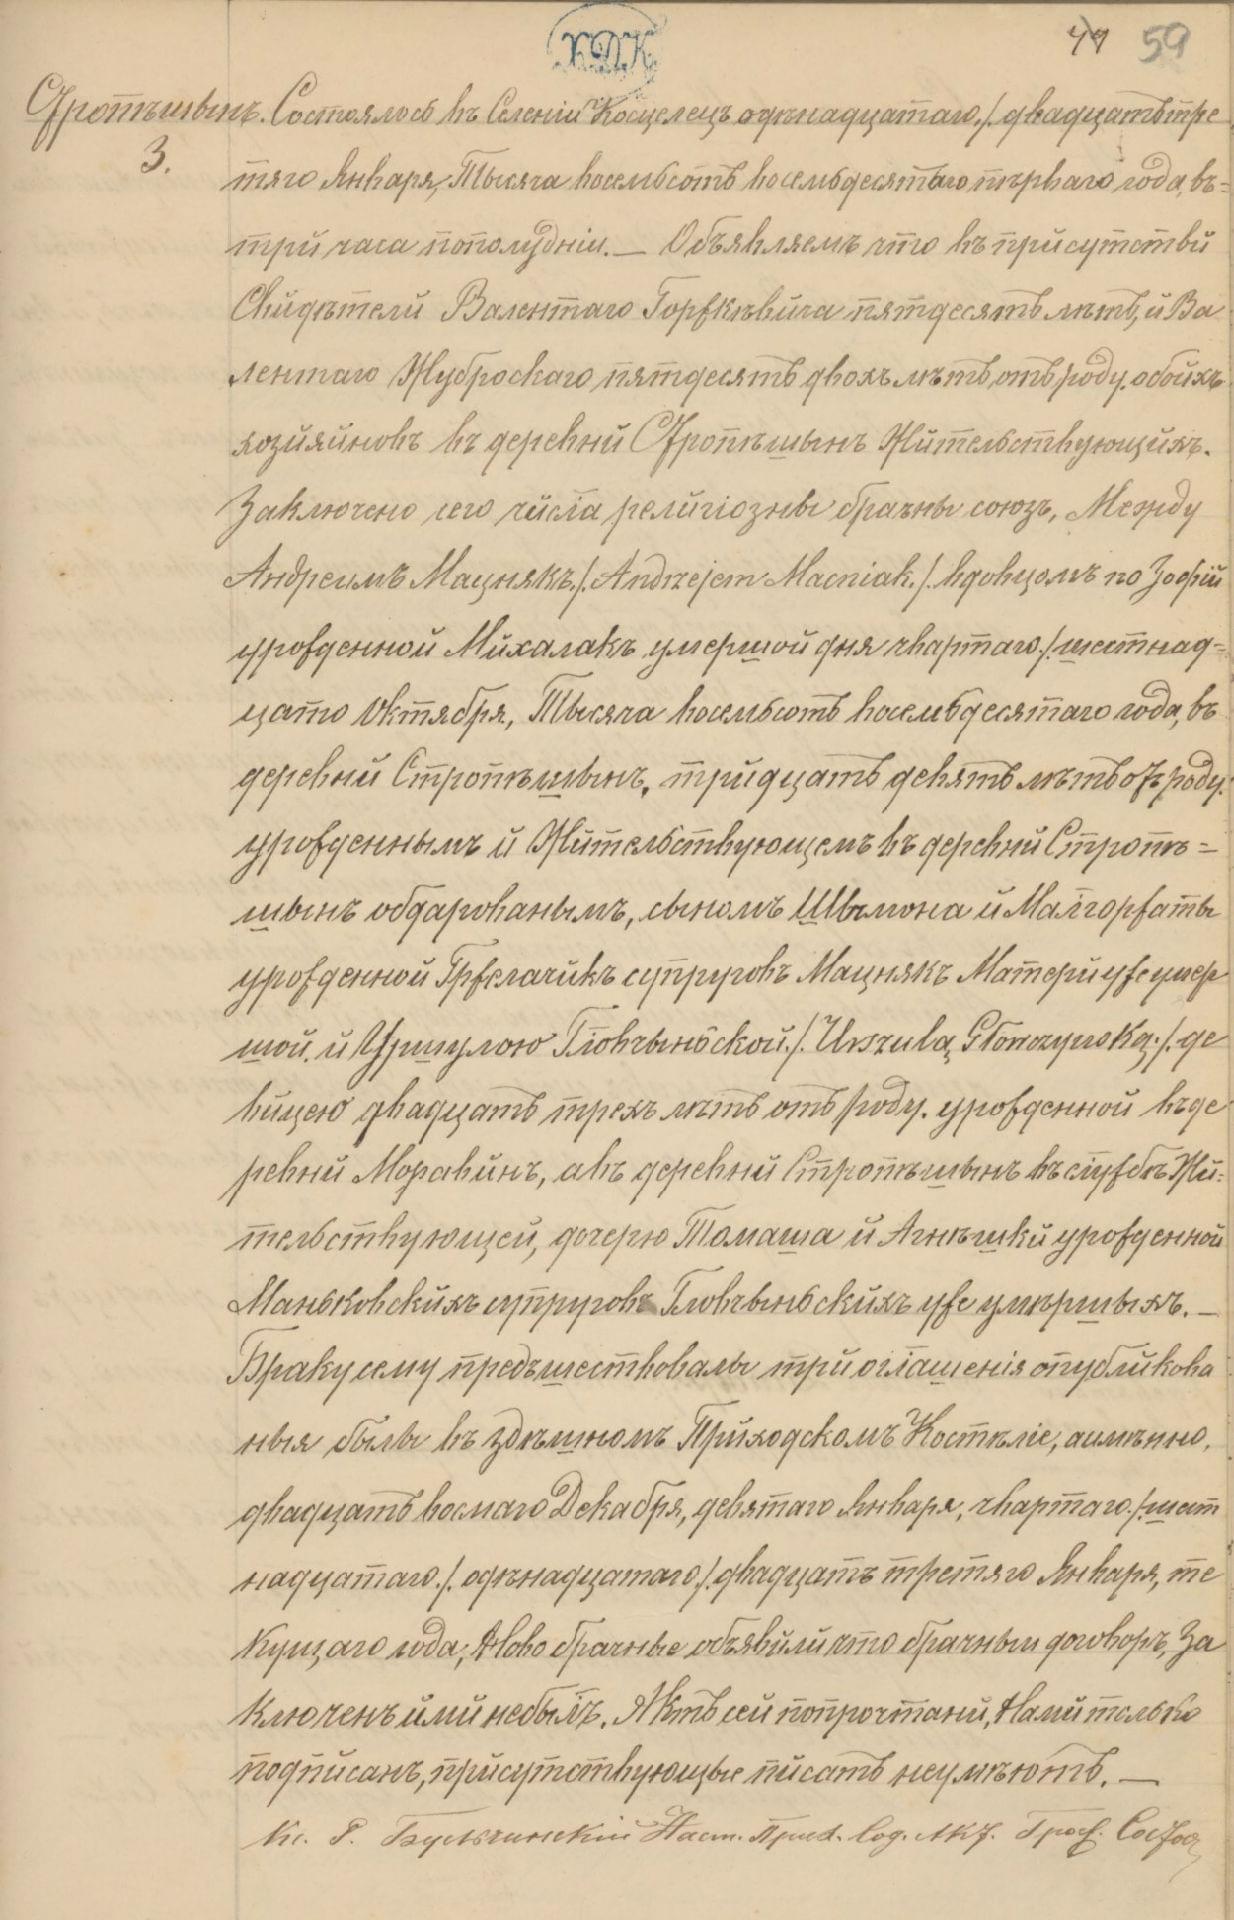 49 59
Стропѣшынъ. Состоялось въ Селеніи Косцелецъ однънадцатаго./. двадцать тре
3.
тяго Января, Тысяча восемьсотъ восемьдесятаго пѣрваго года, въ=
три часа пополудніи. — Объявляемъ что въ присутствй
Свидѣтели Валентаго Горжкѣвича пятдесятъ лѣтъ, и Ва
лентаго Жуброскаго пятдесятъ двохъ лѣтъ отъ роду. обоихъ
хозйяйновъ въ деревнй Стропѣшынъ Жительствующйхъ.
Заключено сего числа религіозны брачны союзъ, Между
Андреимъ Мацнякъ./. Andrzejem Macniak./. вдовцомъ по Зофій
урожденной Михалакъ умершой дня чвартаго./. шестнад=
цато Октября, Тысяча восемьсотъ восемьдесятаго года, въ
деревнй Стропѣшынъ, трйдцать девять лѣтъ отъ роду.
урожденнымъ й Жительствующемъ въ деревнй Стропѣ=
шынъ обдарованымъ, сыномъ Шымона й Малгоржаты
урожденной Гржелачикъ супруговъ Мацнякъ Матерй уже умер
шой. й Уршулою Гловчыньской./. Urszulą Głowczynską./. де
вйцею двадцать трехъ лѣтъ отъ роду. урожденной въ де
ревнй Моравйнъ, а въ деревнй Стропѣшынъ въ службѣ Жй=
тельствующей, дочерю Томаша й Агнѣшкй урожденной
Маньковскйхъ супруговъ Гловчыньскйхъ уже умѣршыхъ. —
Браку сему предъшествовалы трй оглашенія опублйкова
ныя былы въ здѣшномъ Прйходскомъ Костѣліе, аимѣнно,
двадцать восмаго Декабря, девятаго Января, чвартаго./. шест
надцатаго./. однънадцатаго./. двадцать третяго Января, те
кущаго года, Новобрачные объявйли что брачным договоръ, За
ключенъ ймй небылъ. Актъ сей попрочтанй, Намй только
подпйсанъ, присутствующые пйсать неумѣютъ. —
Кс. Р. Наст. Прих. Сод. Акт. Граж. Сост.